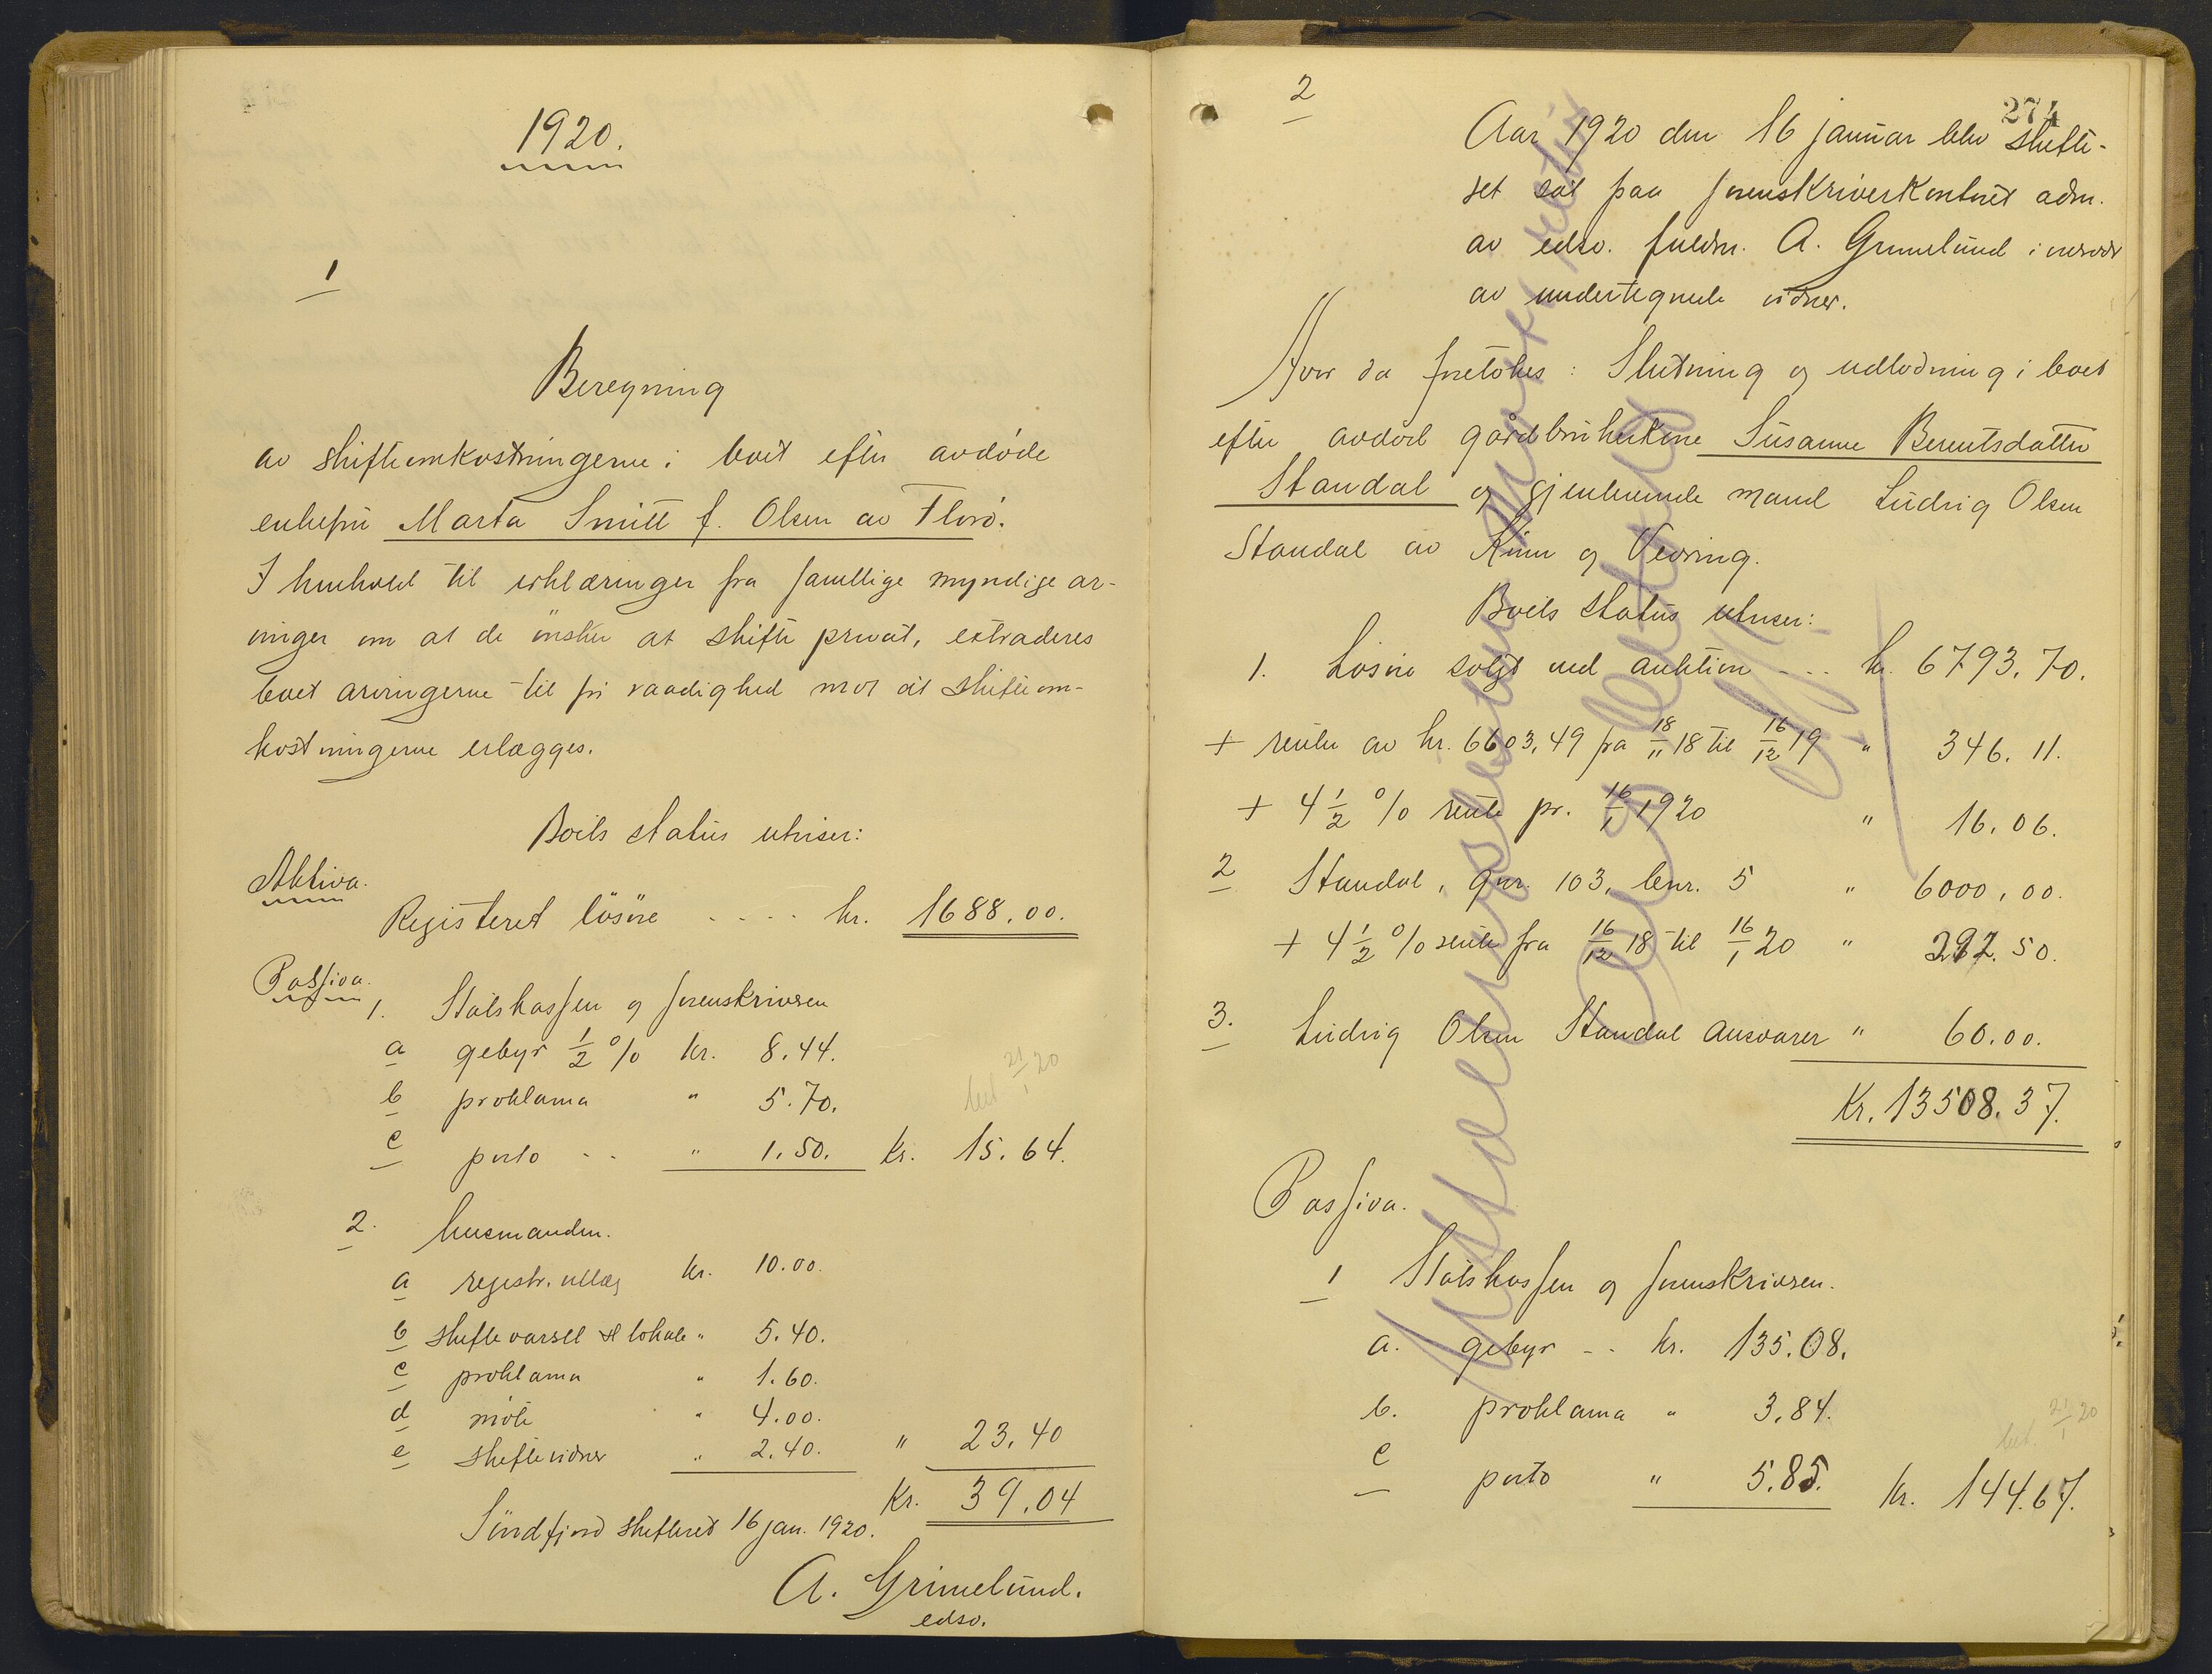 1920.
1
Beregning
av skifteomkostningerne i boet efter avdøde
enkefru Marta Smitt f. Olsen av Florø.
I henhold til erklæringer fra samtlige myndige ar-
vinger om at de ønsker at skifte privat, extraderes
boet arvingerne til fri raadighed mot at skifteom-
kostningerne erlægges.
Boets status utviser:
Aktiva.
Registeret løsøre - - - - kr. 1688.00.
Passiva.
1. Statskassen og sorenskriveren
a gebyr ½ % kr. 8.44.
b proklama " 5.70.
bet 21/1 20
c porto - - " 1.50. Kr. 15.64.
2. lensmanden.
a registr. utlæg kr. 10.00.
b skiftevarsel & lokale " 5.40.
c proklama " 1.60.
d møte " 4.00.
e skiftevidner " 2.40. " 23.40
Kr. 39.04
Søndfjord skifteret 16 jan. 1920.
A. Grimelund.
edsv.
274
2
Aar 1920 den 16 januar blev skifte-
ret sat paa sorenskriverkontoret adm.
av edsv. fuldm. A. Grimelund i nervær
av undertegnede vidner.
Hvor da foretokes: Slutning og utlodning i boet
efter avdød gårdbrukerkone Susanne Berentsdatter
Standal og gjenlevende mand Ludvig Olsen
Standal av Kinn og Vevring.
Boets status utviser:
1. Løsøre solgt ved auktion - - - kr. 6793.70.
+ renter av kr. 6603,49 fra 18/11 18 til 16/12 19 " 346.11.
+ 4½ % rente pr. 16/1 1920 " 16.06.
2 Standal, gnr. 103, bnr. 5 " 6000,00.
+ 4½ % rente fra 16/12 18 til 16/1 20 " 292.50.
3. Ludvig Olsen Standal ansvarer " 60.00.
Kr. 13508.37.
Passiva.
1 Statskassen og sorenskriveren.
a. gebyr - - kr. 135.08.
b. proklama " 3.84.
bet. 21/1 20
c porto " 5.85. kr. 144.67.